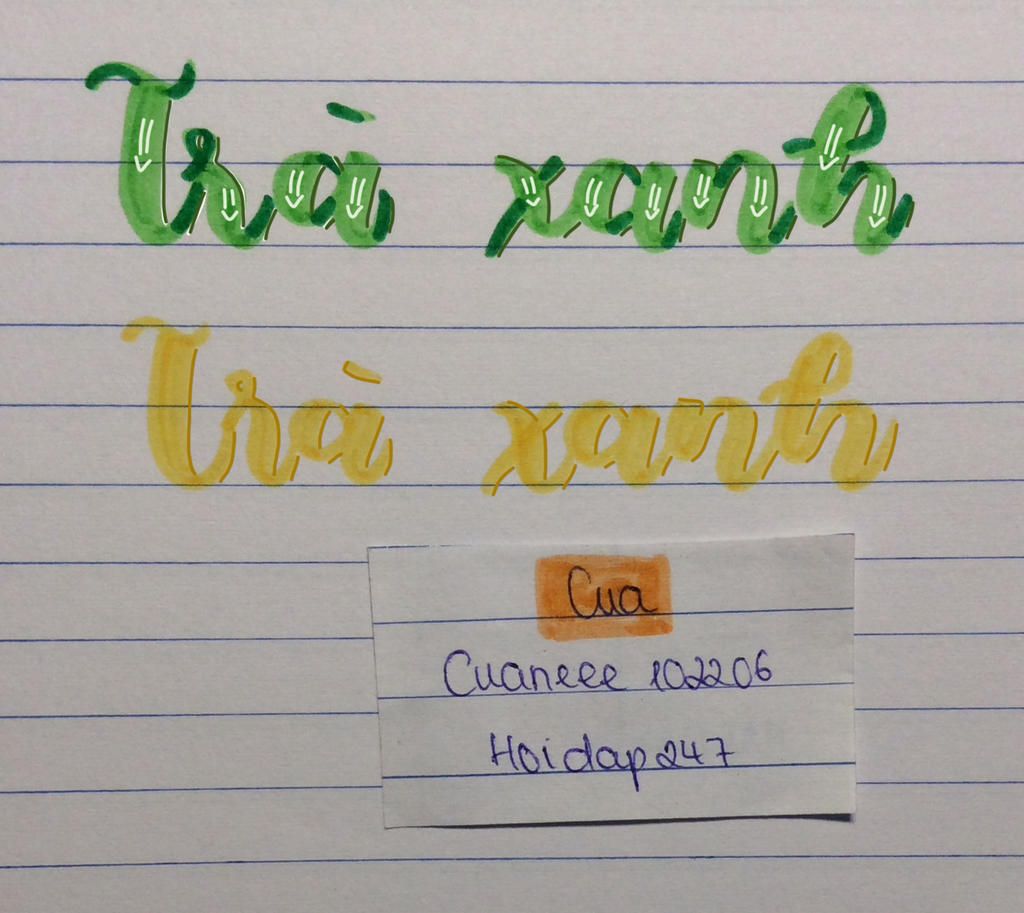 Trà xanh
Trà xanh
Cua
Cuaneee 102206
Hoidap247